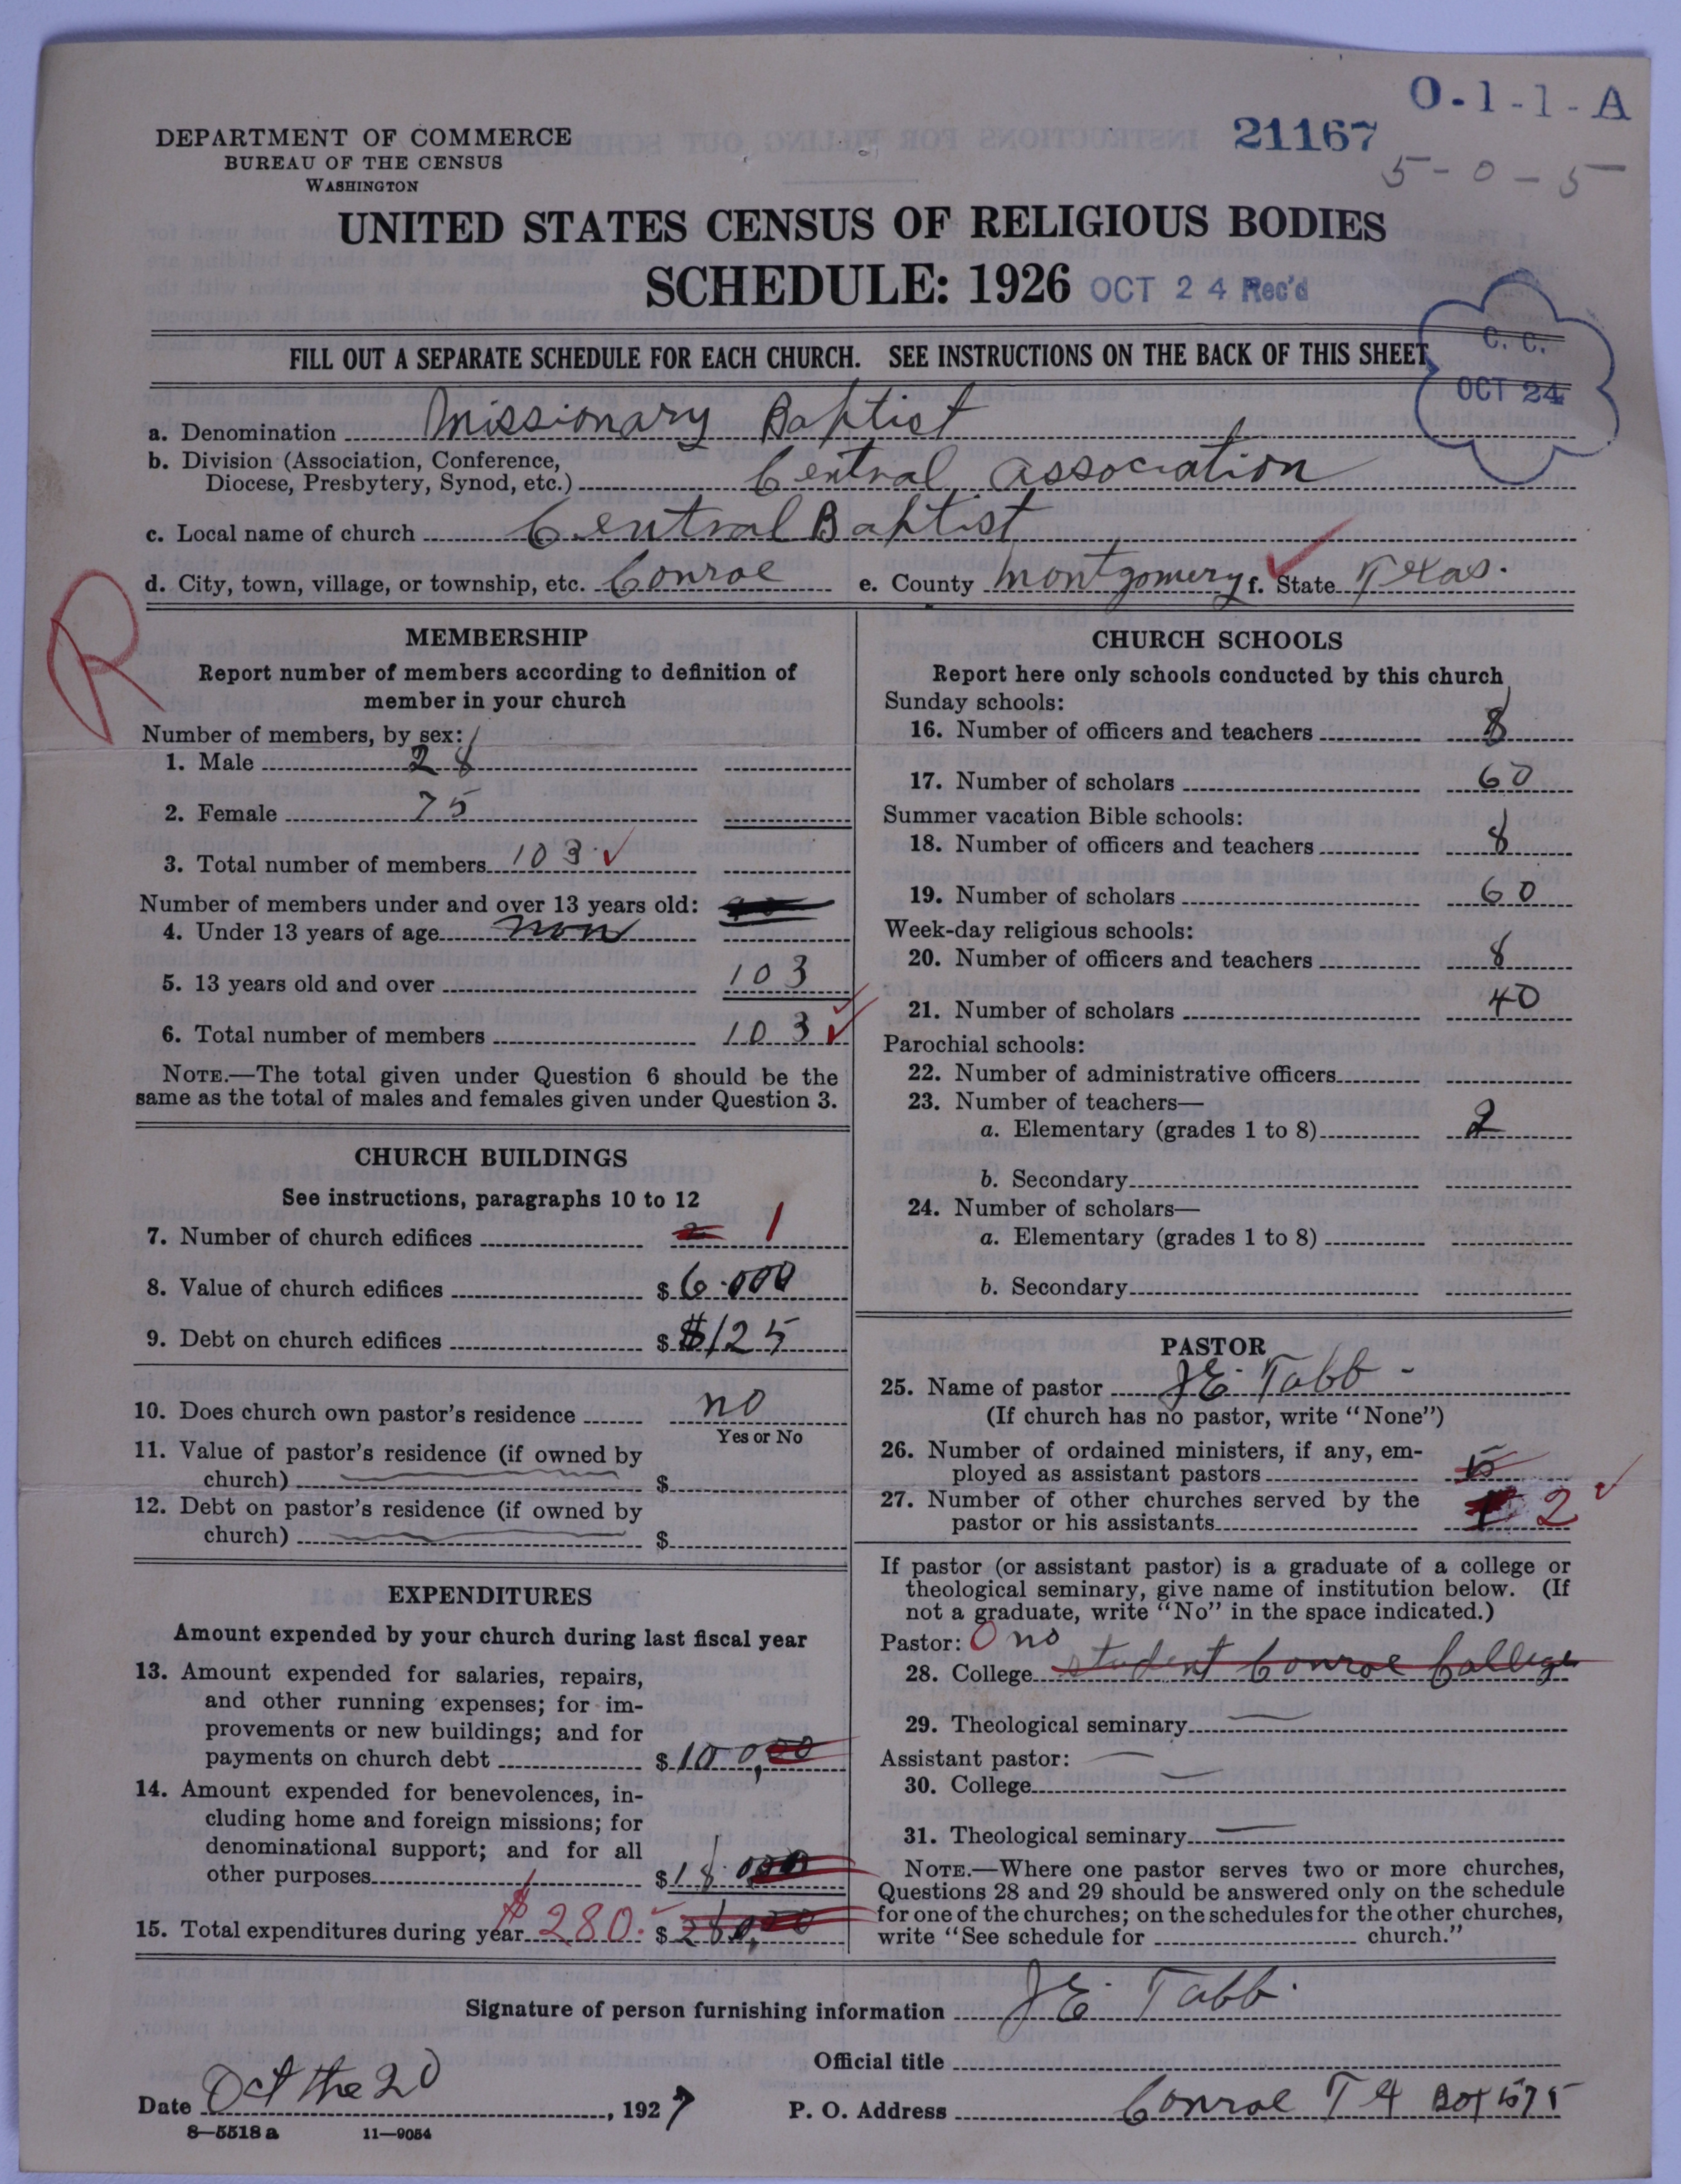 O-1-1-A
21167
5-0-5
DEPARTMENT OF COMMERCE
BUREAU OF THE CENSUS
WASHINGTON
UNITED STATES CENSUS OF RELIGIOUS BODIES
SCHEDULE: 1926 OCT 24 Rec'd
C. C.
OCT 24
FILL OUT A SEPARATE SCHEDULE FOR EACH CHURCH. SEE INSTRUCTIONS ON THE BACK OF THIS SHEET
a. Denomination Missionary Baptist
b. Division (Association, Conference,
Diocese, Presbytery, Synod, etc.) Central Association
c. Local name of church Central Baptist
d. City, town, village, or township, etc. Conroe e. County Montgomery f. State Texas.
R
MEMBERSHIP
Report number of members according to definition of
member in your church
Number of members, by sex:
1. Male 28
2. Female 75
3. Total number of members 103
Number of members under and over 13 years old:
4. Under 13 years of age non
5. 13 years old and over 103
6. Total number of members 103
NOTE.—The total given under Question 6 should be the
same as the total of males and females given under Question 3.
CHURCH BUILDINGS
See instructions, paragraphs 10 to 12
7. Number of church edifices 2 1
8. Value of church edifices $ 6.000
9. Debt on church edifices $ $125
10. Does church own pastor's residence no
Yes or No
11. Value of pastor's residence (if owned by
church) $
12. Debt on pastor's residence (if owned by
church) $
EXPENDITURES
Amount expended by your church during last fiscal year
13. Amount expended for salaries, repairs,
and other running expenses; for im-
provements or new buildings; and for
payments on church debt $ 100,00
14. Amount expended for benevolences, in-
cluding home and foreign missions; for
denominational support; and for all
other purposes $ 18.000
15. Total expenditures during year $280. $ 280,00
CHURCH SCHOOLS
Report here only schools conducted by this church
Sunday schools:
16. Number of officers and teachers 8
17. Number of scholars 60
Summer vacation Bible schools:
18. Number of officers and teachers 8
19. Number of scholars 60
Week-day religious schools:
20. Number of officers and teachers 8
21. Number of scholars 40
Parochial schools:
22. Number of administrative officers
23. Number of teachers—
a. Elementary (grades 1 to 8) 2
b. Secondary
24. Number of scholars—
a. Elementary (grades 1 to 8)
b. Secondary
PASTOR
25. Name of pastor JE. Tabb -
(If church has no pastor, write "None")
26. Number of ordained ministers, if any, em-
ployed as assistant pastors
27. Number of other churches served by the
pastor or his assistants 2
If pastor (or assistant pastor) is a graduate of a college or
theological seminary, give name of institution below. (If
not a graduate, write "No" in the space indicated.)
Pastor: O no
28. College student Conroe College
29. Theological seminary
Assistant pastor:
30. College
31. Theological seminary
NOTE.—Where one pastor serves two or more churches,
Questions 28 and 29 should be answered only on the schedule
for one of the churches; on the schedules for the other churches,
write "See schedule for church."
Signature of person furnishing information JE. Tabb.
Official title
Date Oct the 20, 1927 P. O. Address Conroe TX Box 575
8—5518 a 11—9054